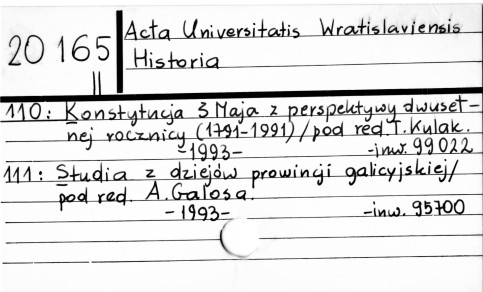 20 165
||
Acta Universitatis Wratislaviensis
Historia
110: Konstytucja 3 Maja z perspektywy dwuset-
nej rocznicy (1791-1991)/pod red. T. Kulak.
-1993- -inw. 99022
111: Studia z dziejów prowincji galicyjskiej/
pod red. A. Galosa.
-1993- -inw. 95700